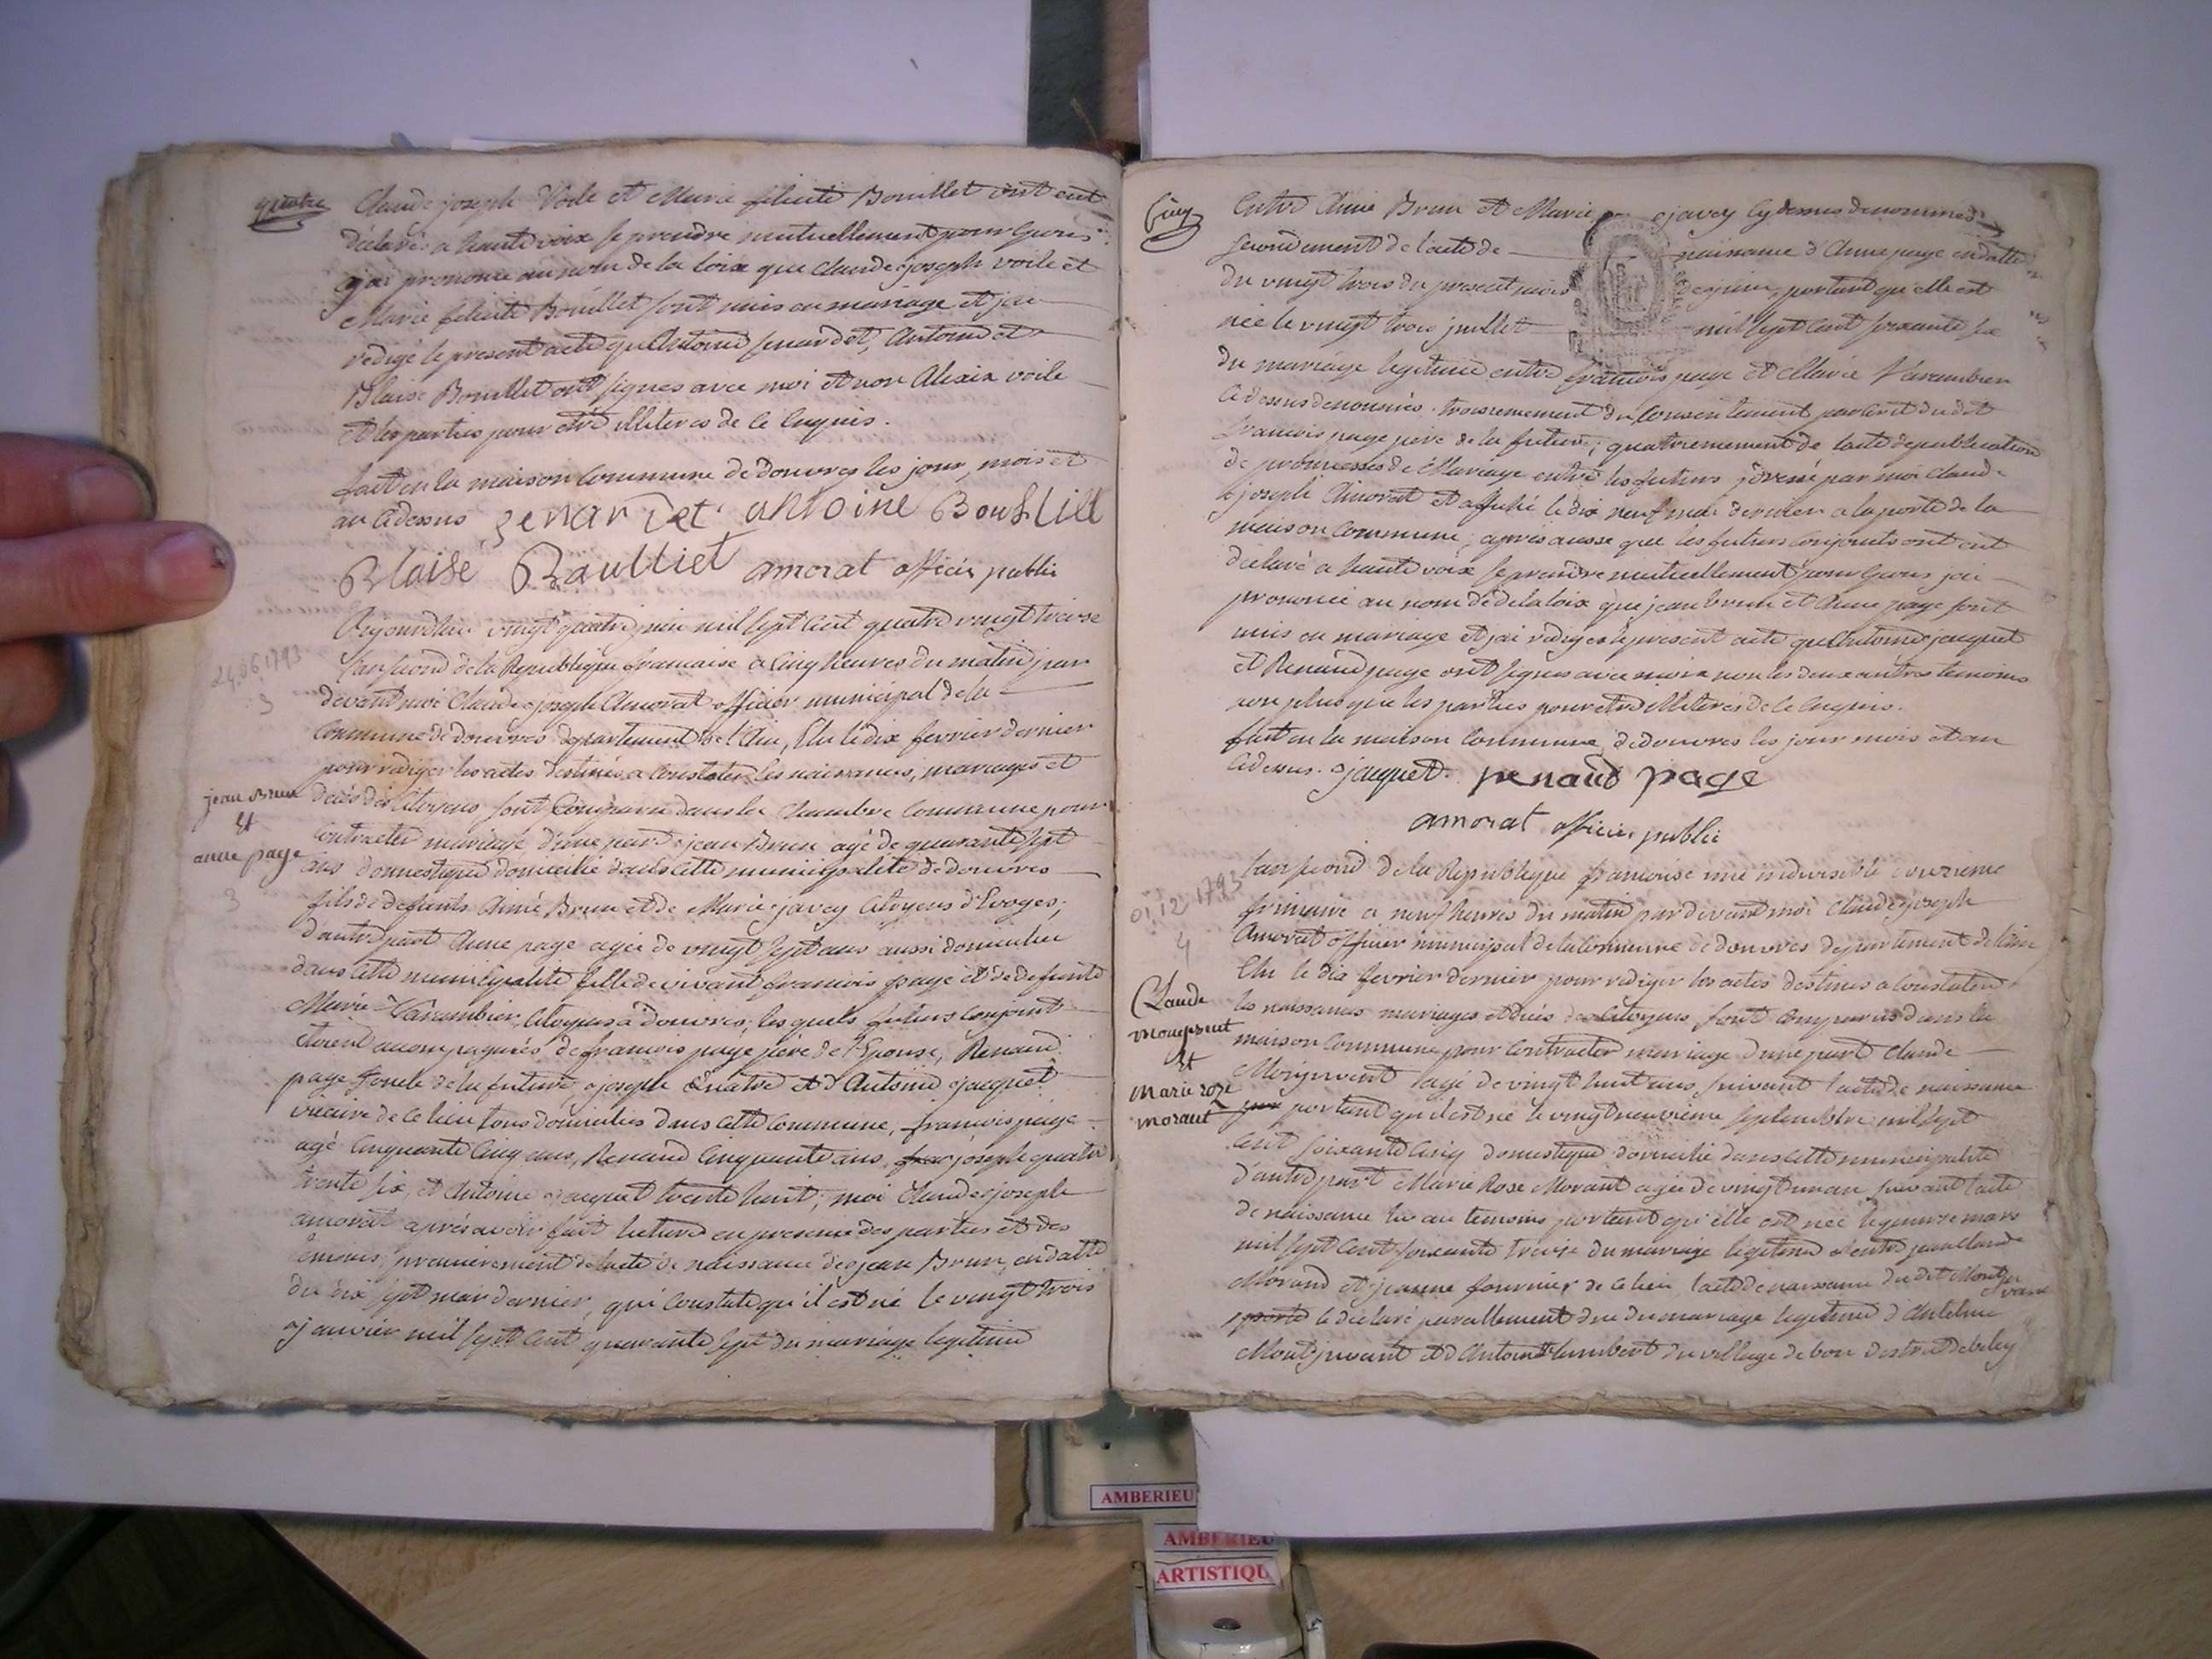 quatre
Claude joseph Voile et Marie felicité Bouillet ont eut
déclarés a haute voix se prendre mutuellement pour Epoux
j'ai prononcé au nom de la loix que Claude joseph voile et
Marie felicité Bouillet sont unis en mariage et j'ai
redigé le present acte qu'Antoine senardet, Antoine et
Blaise Bouillet ont signes avec moi et non Alexis voile
et les parties pour etre illiteres de ce Enquis.
fait en la maison Commune de douvres les jour, mois et
an Cidessus senardet antoine Bouillet
Blaise Baulliet amorat officier public
24.06.1793
3
Aujourdhui vingt quatre juin mil sept cent quatre vingt treize
l'an second de la Republique francaise a cinq heures du matin par
devant moi Claude joseph Amorat officier municipal de la
Commune de douvres departement de l'Ain, Elu le dix fevrier dernier
pour rediger les actes destinés a Constater les naissances, mariages et
jean Brun
Et
anne page
3
decès des Citoyens sont Comparu dans la Chambre Commune pour
Contracter mariage d'une part jean Brun agé de quarante sept
ans domestique domicilié dans cette municipalité de douvres
fils de defunts Aimé Brun et de Marie javey Citoyens d'Evoges;
d'autre part Anne page agée de vingt sept ans aussi domiciliée
dans cette municipalité fille de vivant francois page et de defunte
Marie Varambier, Citoyens a douvres; les quels futurs Conjoint
etoient accompagnés de francois page père de l'Epouse, Renaud
page Loncle de la future, joseph Quatre et d'Antoine jacquet
vicaire de ce lieu tous domiciliés dans cette Commune, francois page
agé Cinquante Cinq ans, Renaud Cinquante ans, joseph quatre
trente six, et Antoine jacquet trente huit; moi Claude joseph
amorat après avoir fait lecture en presence des parties et des
temoins; premierement de l'acte de naissance de jean Brun, en datte
du dix sept mai dernier, qui Constate qu'il est né le vingt trois
janvier mil sept Cent quarante sept du mariage legitime
Cinq
Entre Aimé Brun et Marie javey Cydessus denommés
secondement de l'acte de naissance d'Anne page en datte
du vingt trois du present mois de juin, portant qu'elle est
née le vingt trois juillet mil sept Cent soixante six
du mariage legitime entre francois page et Marie Varambier
Cidessus denommés. troisiemement du Consentement par ecrit dudit
francois page père de la future; quatriemement de l'acte de publication
de promesses de Mariage entre les futurs dressé par moi Claude
joseph Amorat et affiché le dix neuf mai dernier a la porte de la
maison Commune; après aussi que les futurs Conjoints ont eut
declaré a haute voix se prendre mutuellement pour Epoux jai
prononcé au nom de de la loix que jean brun et Anne page sont
unis en mariage et jai rediges le present acte qu'Antoine jacquet
et Renaud page ont signes avec moi non les deux autres temoins
non plus que les parties pour etre illiteres de ce Enquis.
fait en la maison Commune de douvres les jour mois et an
Cidessus. jacquet. renaud page
amorat officier public
01.12.1793
4
Lan second de la Republique francoise une indivisible onzieme
frimaire a neuf heures du matin par devant moi Claude joseph
Amorat officier municipal de la Commune de douvres departement de lain
Elu le dix fevrier dernier pour rediger les actes destines a Constater
Claude
monjvent
Et
Marie roze
morant
les naissances mariages et decés des Citoyens, sont Comparus dans la
maison Commune pour Contracter mariage dune part Claude
Monjuvent agé de vingt huit ans, suivant l'acte de naissance
portant qu'il est né le vingt neuvieme septembre mil sept
Cent soixante Cinq domestique domicilié dans cette municipalité
d'autre part Marie Rose Morant agée de vingt un an suivant l'acte
de naissance lu au temoins portant qu'elle est née le quinze mars
mil sept Cent soixante treize du mariage legitime entre jean Claude
Morand et jeanne fournier de ce lieu l'acte de naissance du dit Montju
vent
le declaré pareillement du mariage legitime d'Antelme
Montjuvent et d'Antoinette humbert du village de bon district de beley
AMBERIEU
AMBERIEU
ARTISTIQU